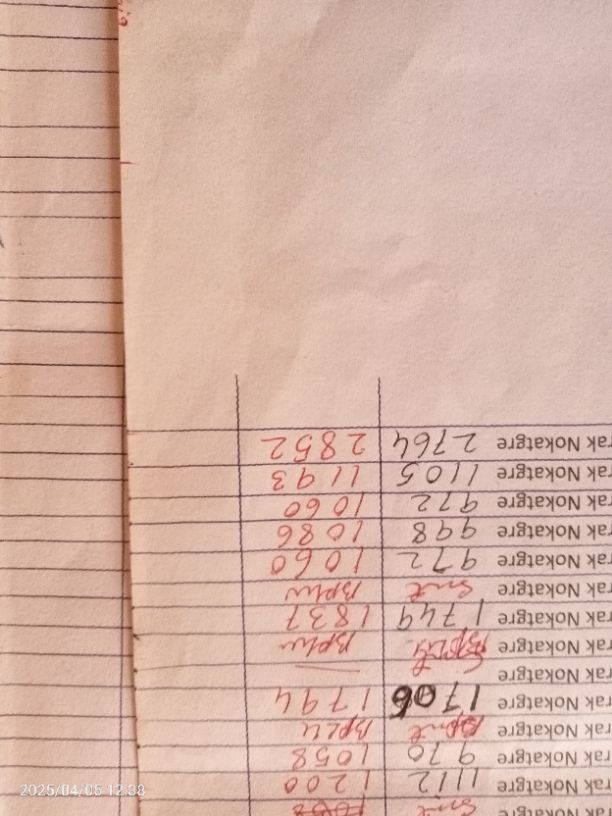 rak Nokatgre
rak Nokatgre 1112 1200
rak Nokatgre 970 1058
rak Nokatgre
rak Nokatgre 1706 1794
rak Nokatgre
rak Nokatgre
rak Nokatgre 1749 1837
rak Nokatgre
rak Nokatgre 972 1060
rak Nokatgre 998 1086
rak Nokatgre 972 1060
rak Nokatgre 1105 1193
rak Nokatgre 2764 2852
2025/04/05 12:38